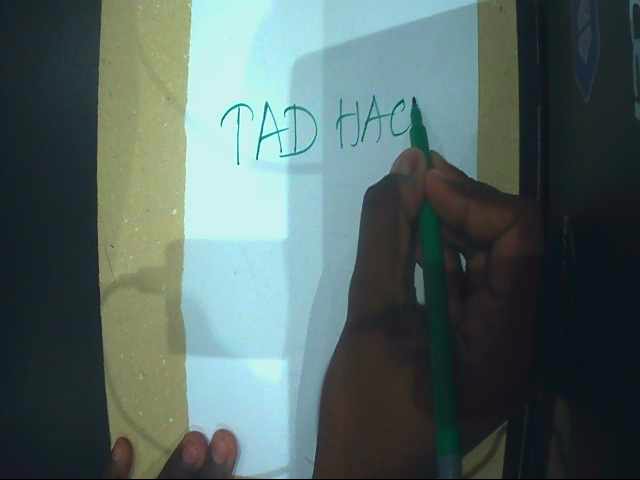 TAD HAC